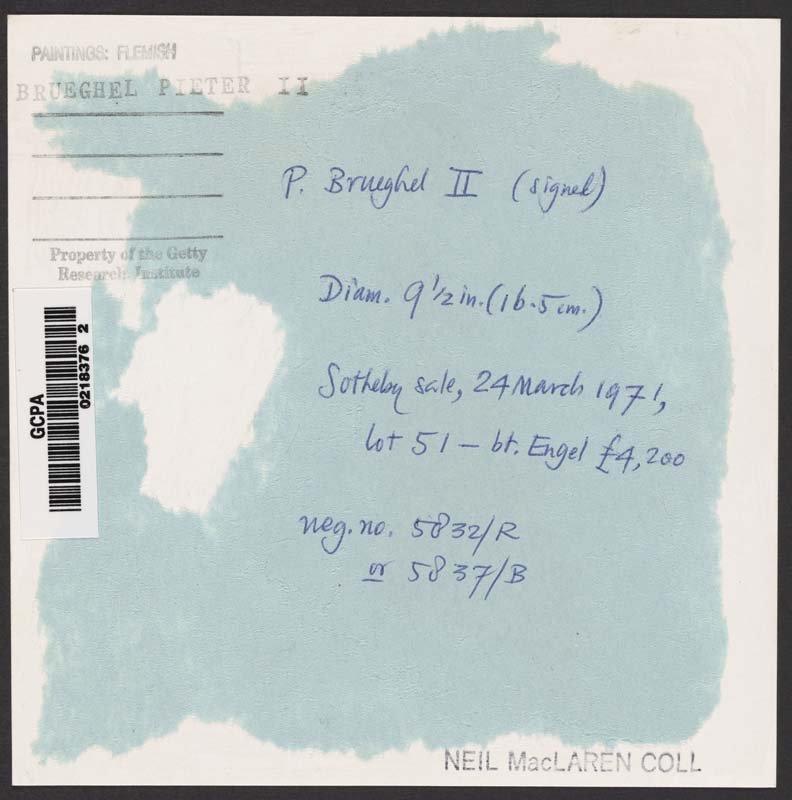 PAINTINGS: FLEMISH
BRUEGHEL PIETER II
Property of the Getty
Research Institute
GCPA
0218376 2
P. Brueghel II (signed)
Diam. 9 1/2 in. (16.5 cm.)
Sotheby sale, 24 March 1971,
lot 51 — bt. Engel £4,200
neg. no. 5832/R
or 5837/B
NEIL MacLAREN COLL